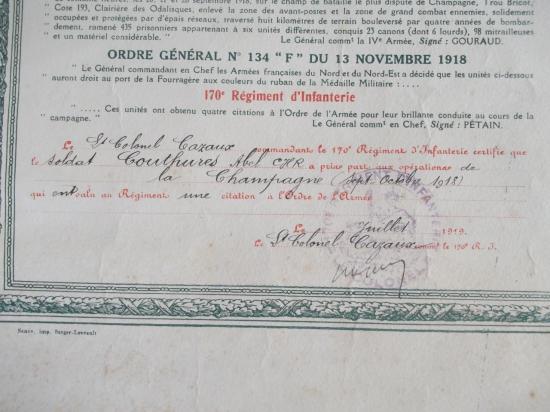 " Cote 193, Clairière des Odalisques, enlevé la zone des avant-postes et la zone de grand combat ennemies, solidement
" occupées et protégées par d'épais réseaux, traversé huit kilomètres de terrain bouleversé par quatre années de bombar-
" dement, ramené 435 prisonniers appartenant à six unités différentes, conquis 23 canons (dont 6 lourds), 98 mitrailleuses
" et un matériel considérable. " Le Général commt la IVe Armée, Signé : GOURAUD.
ORDRE GÉNÉRAL N° 134 "F" DU 13 NOVEMBRE 1918
" Le Général commandant en Chef les Armées françaises du Nord et du Nord-Est a décidé que les unités ci-dessous
" auront droit au port de la Fourragère aux couleurs du ruban de la Médaille Militaire : ....
170e Régiment d'Infanterie
" ..... Ces unités ont obtenu quatre citations à l'Ordre de l'Armée pour leur brillante conduite au cours de la
" campagne. " Le Général commt en Chef, Signé : PÉTAIN.
Le Lt Colonel Cazaux commandant le 170e Régiment d'Infanterie certifie que
le soldat Couthures Abel CHR a pris part aux opérations de
la Champagne (Sept. Octobre 1918)
qui ont valu au Régiment une citation à l'Ordre de l'Armée
Le Juillet 1919.
Le Lt Colonel Cazaux commt le 170e R. I.
Nancy, imp. Berger-Levrault